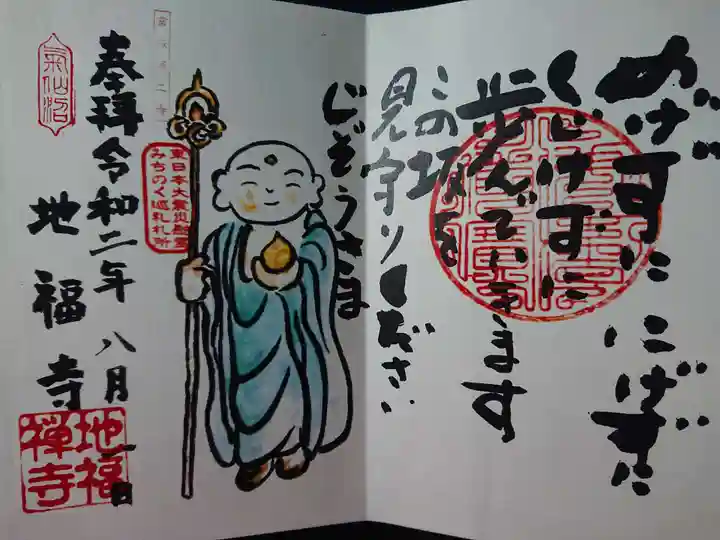 めげずに にげずに
くじけずに
歩んでいきます
この坂を
見守りください
じぞうさま
東日本大震災慰霊
みちのく巡礼札所
奉拝 令和二年 八月 一日
地福寺
氣仙沼
地福
禅寺